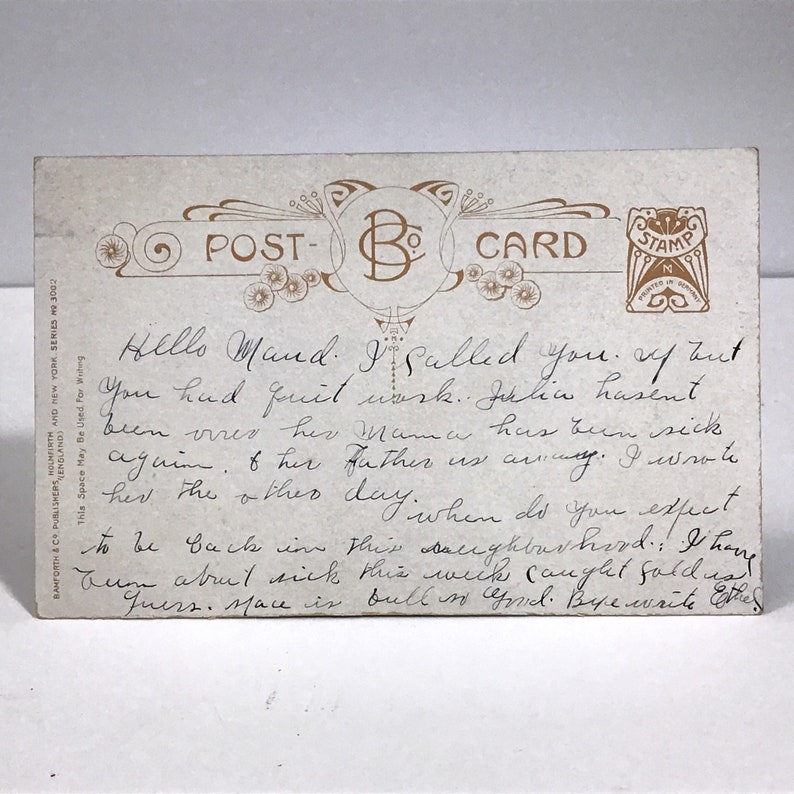 POST-CARD
B Co.
STAMP
N
PRINTED IN GERMANY
BAMFORTH & Co. PUBLISHERS, HOLMFIRTH (ENGLAND) AND NEW YORK. SERIES No 3002
This Space May Be Used For Writing
Hello Maud. I called You. up but
You had quit work.. Julia hasent
been over her Mama has been sick
again. & her Father is away. I wrote
her the other day.
when do you expect
to be back in this neighborhood. I have
been about sick this week caught cold
Guess. is so Good. Bye write Ethel.